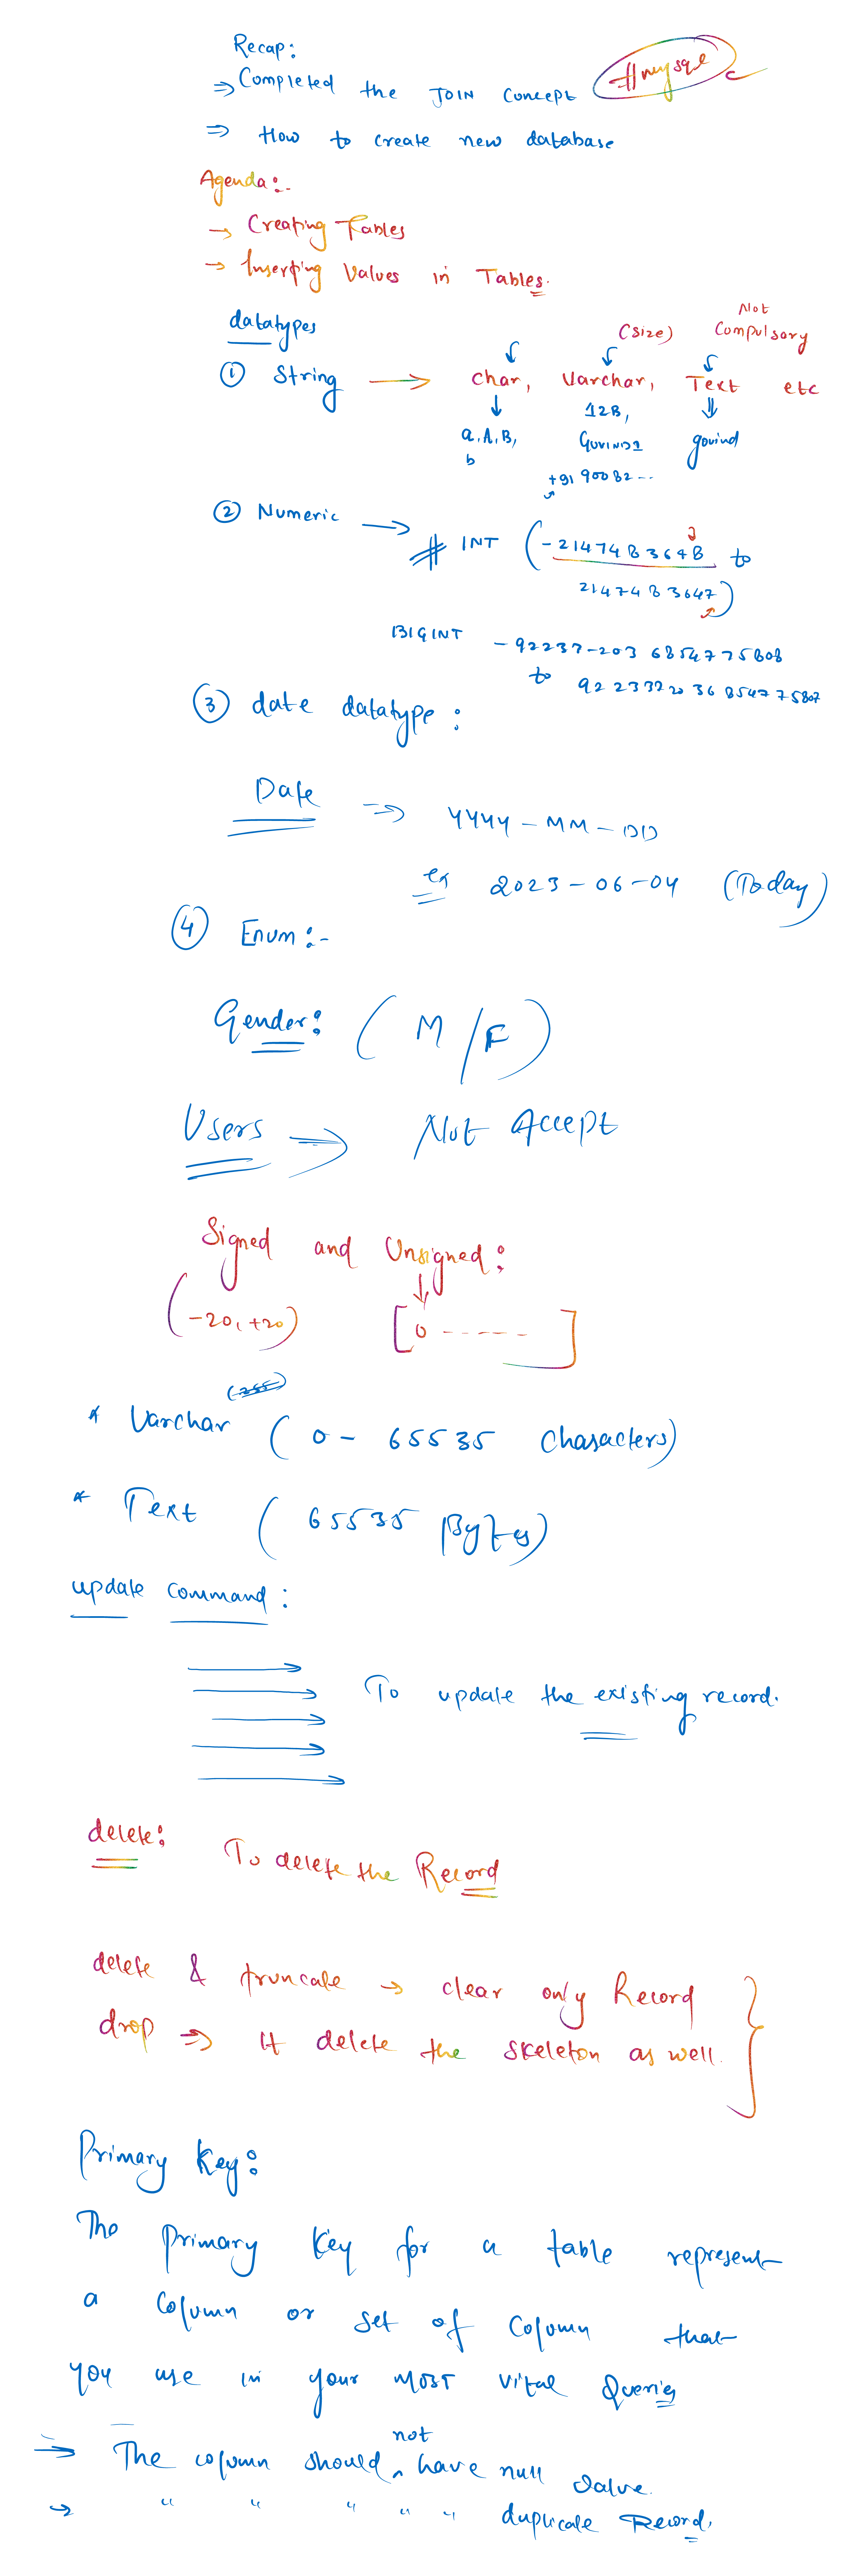 Recap:
⇒ Completed the JOIN Concept #mysql
⇒ How to create new database
Agenda:-
→ Creating Tables
→ Inserting Values in Tables.
datatypes
(size) Not Compulsory
① String → Char, Varchar, Text etc
a, A, B, b
12B, GOVIND1
+91 90082--
govind
② Numeric → # INT (-2147483648 to
2147483647)
BIGINT -92237-203 6854775808
to 9223372036854775807
③ date datatype :
Date ⇒ YYYY-MM-DD
ex 2023-06-04 (Today)
④ Enum :-
Gender: (M/F)
Users ⇒ Not Accept
Signed and Unsigned:
(-20, +20) [0 ------ ]
(255)
* Varchar (0 - 65535 Characters)
* Text (65535 Bytes)
update command :
To update the existing record.
delete: To delete the Record
delete & truncate → clear only Record
drop ⇒ It delete the skeleton as well.
Primary Key:
The primary key for a table represent
a column or set of column that
you use in your most vital Queries
⇒ The column should not have null value.
→ " " " " " duplicate Record.